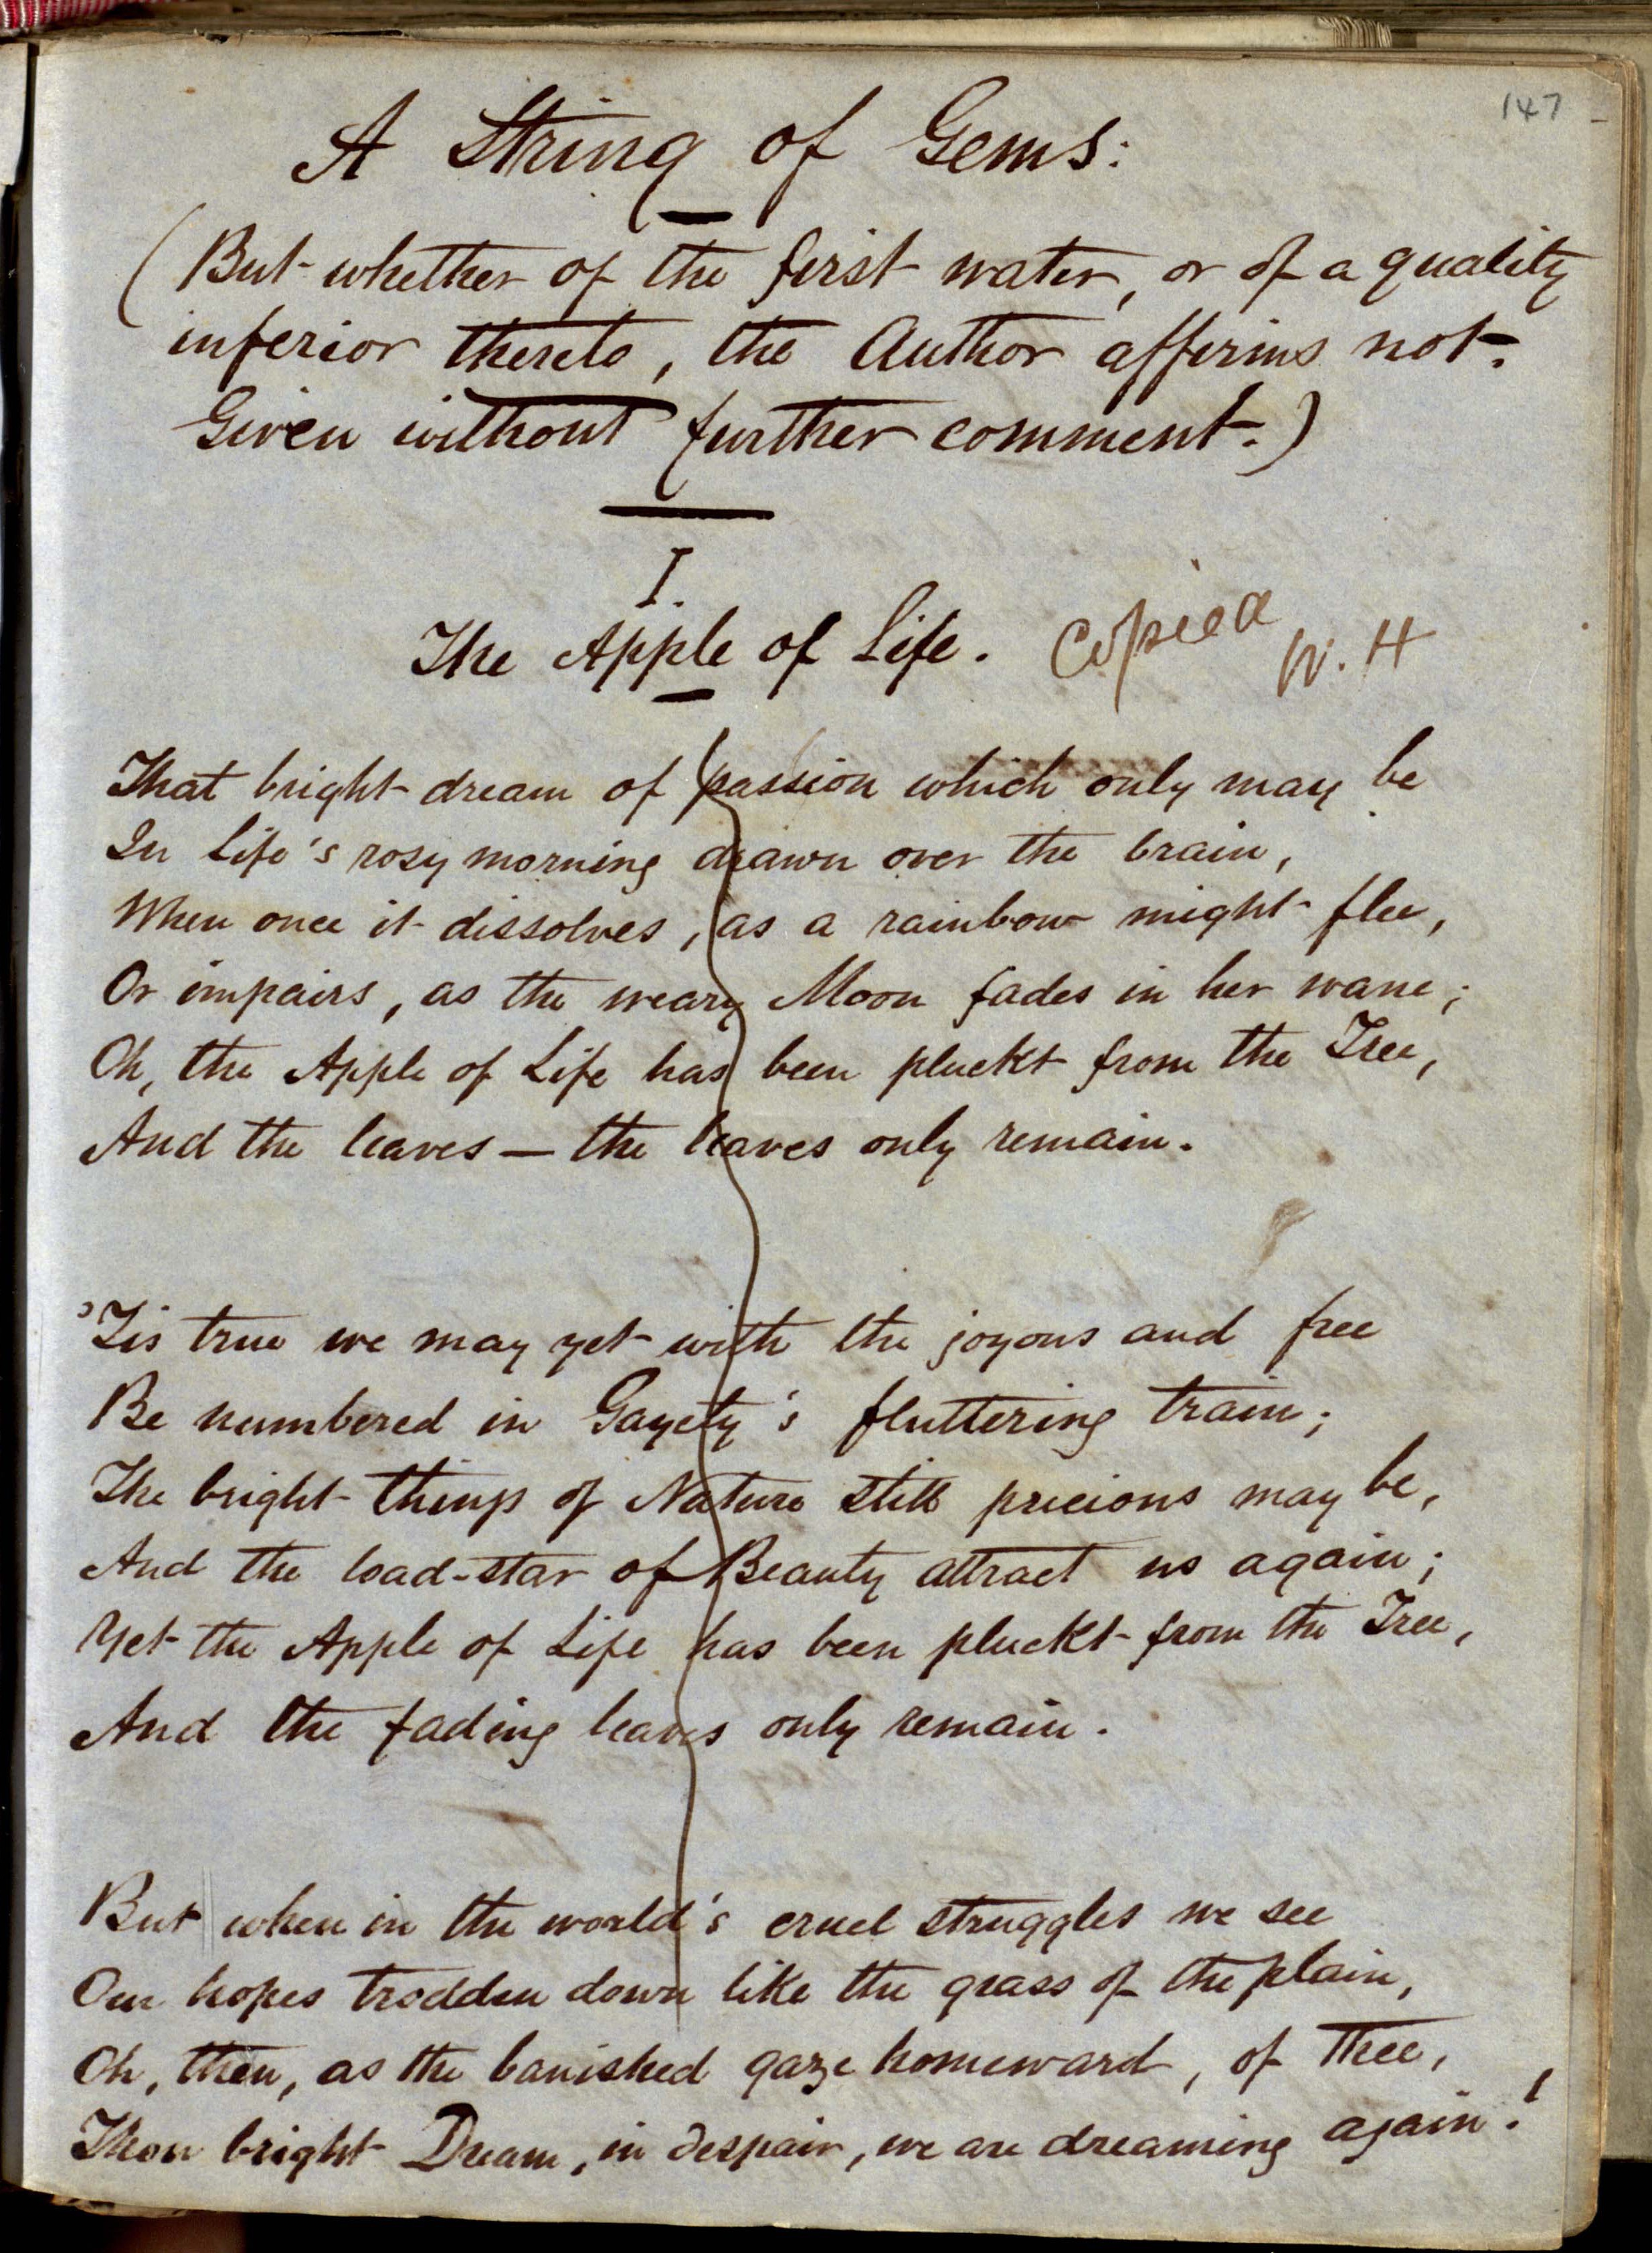 147
A String of Gems:
(But whether of the first water, or of a quality
inferior thereto, the Author affirms not.
Given without further comment.)
I.
The Apple of Life. Copied W. H
That bright dream of passion which only may be
In Life's rosy morning drawn over the brain,
When once it dissolves, as a rainbow might flee,
Or impairs, as the weary Moon fades in her wane;
Oh, the Apple of Life has been pluckt from the Tree,
And the leaves — the leaves only remain.
'Tis true we may yet with the joyous and free
Be numbered in Gayety's fluttering train;
The bright things of Nature still precious may be,
And the load-star of Beauty attract us again;
Yet the Apple of Life has been pluckt from the Tree,
And the fading leaves only remain.
But when in the world's cruel struggles we see
Our hopes trodden down like the grass of the plain,
Oh, then, as the banished gaze homeward, of Thee,
Thou bright Dream, in despair, we are dreaming again!